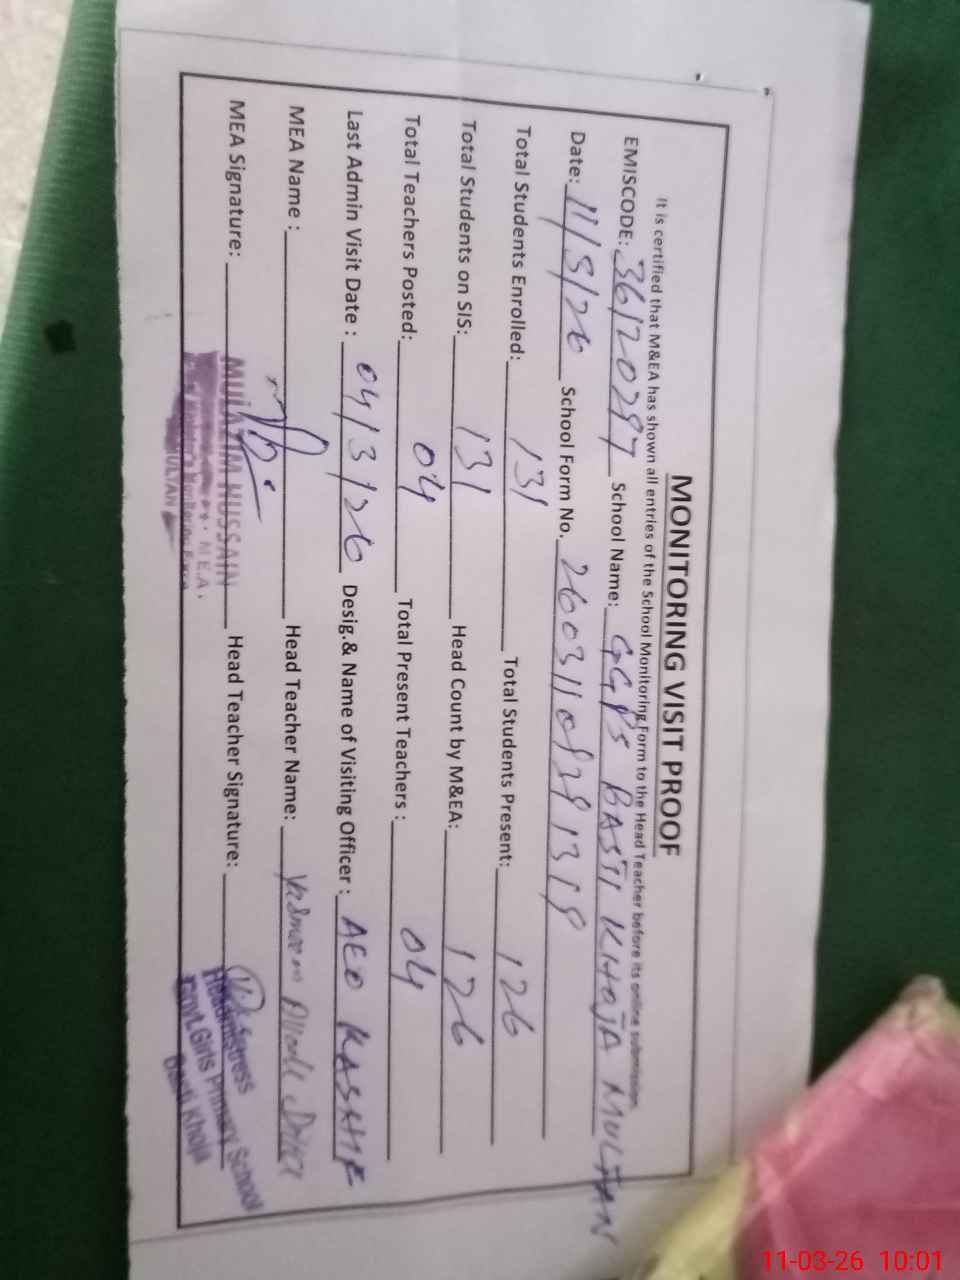 MONITORING VISIT PROOF
It is certified that M&EA has shown all entries of the School Monitoring Form to the Head Teacher before its online submission.
EMISCODE: 36120297 School Name: GGPS BASTI KHOJA MULTAN
Date: 11/3/26 School Form No. 26031108291319
Total Students Enrolled: 131 Total Students Present: 126
Total Students on SIS: 131 Head Count by M&EA: 126
Total Teachers Posted: 04 Total Present Teachers : 04
Last Admin Visit Date : 04/3/26 Desig.& Name of Visiting Officer : AEO KASHIF
MEA Name : Head Teacher Name: Yasmeen
MEA Signature: Head Teacher Signature:
HUSSAIN
M.E.A.
MULTAN
Headmistress
Govt. Girls Primary School
Basti Khoja
11-03-26 10:01